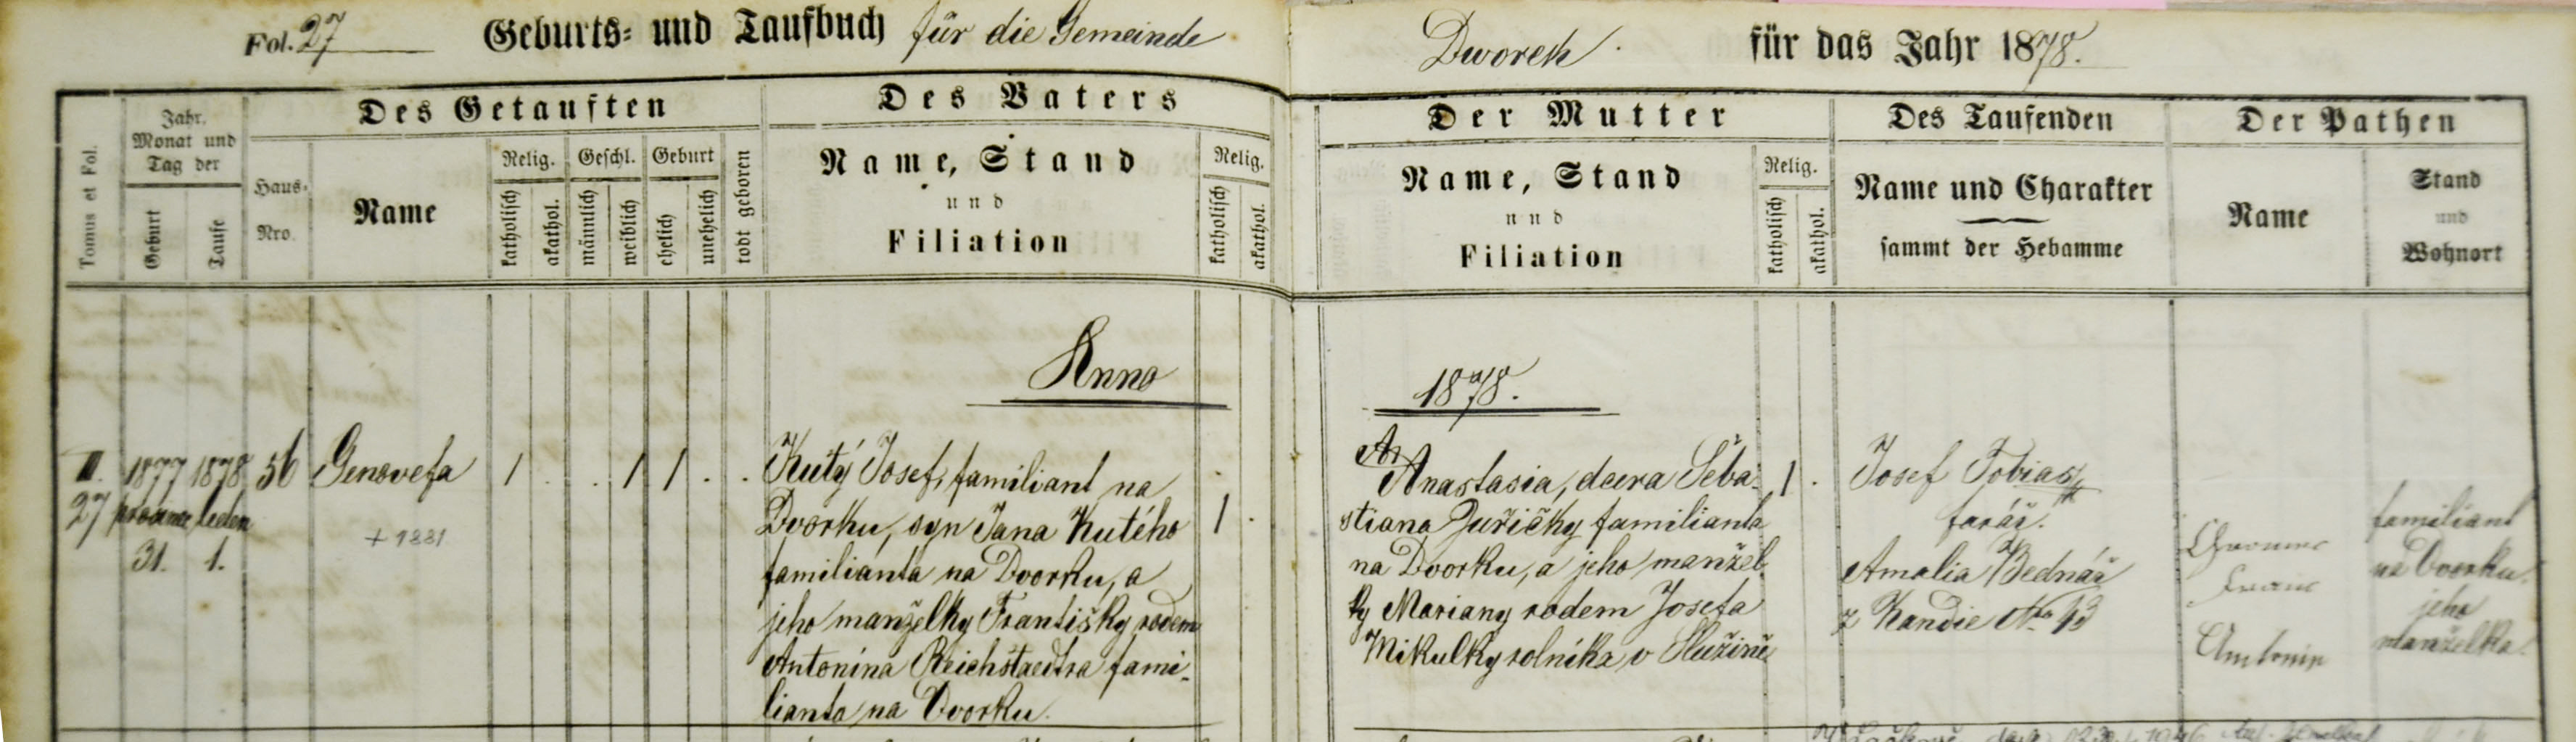 Fol. 27 Geburts= und Taufbuch für die Gemeinde Dworek für das Jahr 1878.
Tomus et Fol.
Jahr, Monat und Tag der
Geburt
Taufe
Des Getauften
Haus-Nro.
Name
Relig.
katholisch
akathol.
Geschl.
männlich
weiblich
Geburt
ehelich
unehelich
todt geboren
Des Vaters
Name, Stand
und
Filiation
Relig.
katholisch
akathol.
Der Mutter
Name, Stand
und
Filiation
Relig.
katholisch
akathol.
Des Taufenden
Name und Charakter
sammt der Hebamme
Der Pathen
Name
Stand
und
Wohnort
Anno 1878.
II.
27
1877
prosince
31.
1878
leden
1.
56
Genovefa
+ 1881
1 . . 1 1 . .
Kutý Josef, familiant na
Dvorku, syn Jana Kutého
familianta na Dvorku, a
jeho manželky Františky rodem
Antonína Reichštaedtra fami-
lianta na Dvorku.
1 .
Anastasia, dcera Šeba-
stiana Juřičky familianta
na Dvorku, a jeho manžel
ky Mariany rodem Josefa
Mikulky rolníka v Slušině
1 .
Josef Tobiasz
farář.
Amalia Bednář
z Kandie No 13
Franc
Antonin
familiant
na Dvorku.
jeho
manželka.